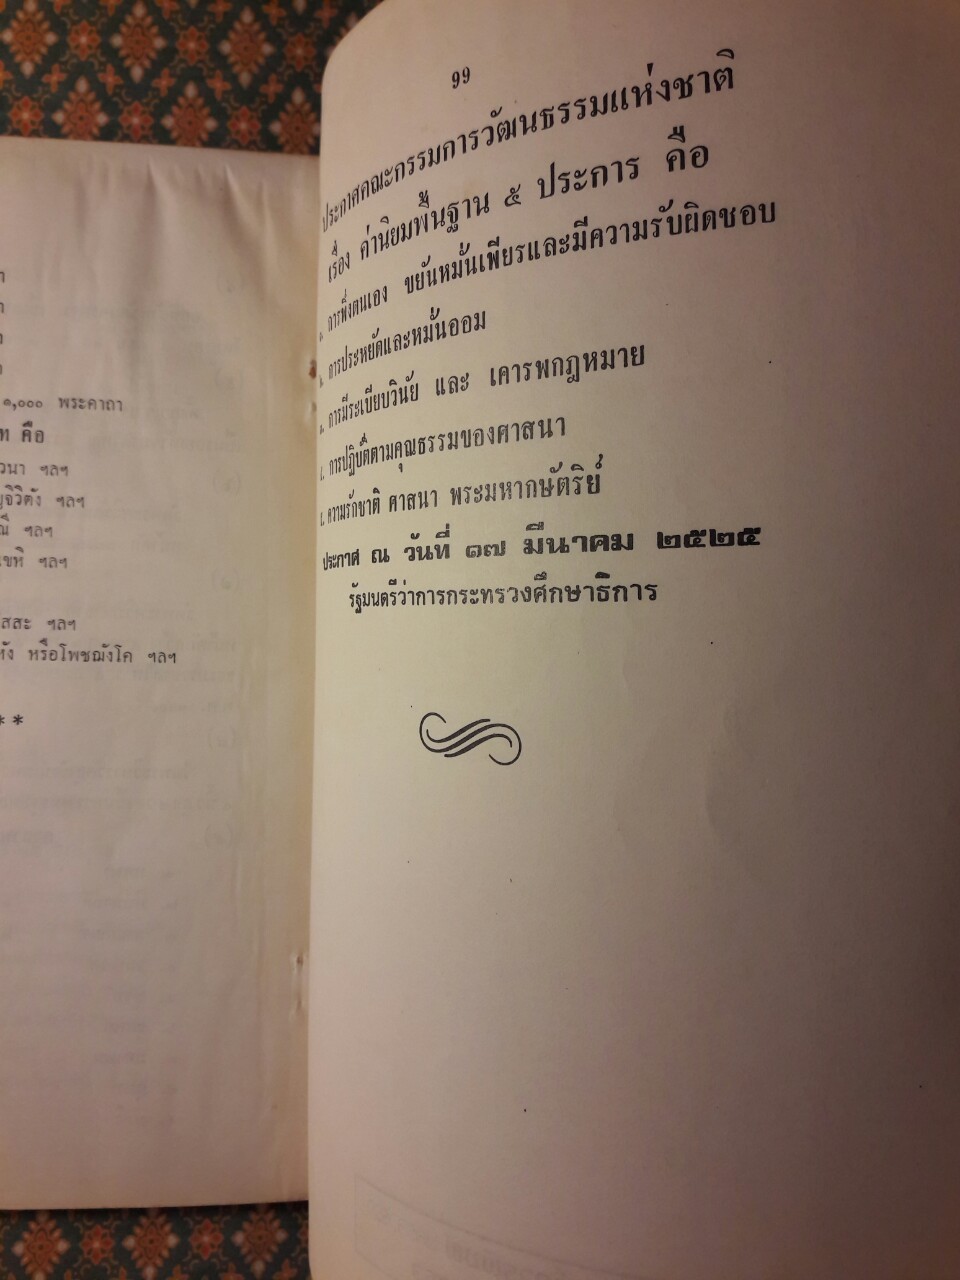 ๑,๐๐๐ พระคาถา
คือ
ฯลฯ
ฯลฯ
ฯลฯ
ฯลฯ
ฯลฯ
หรือโพชฌังโค ฯลฯ
**
99
ประกาศคณะกรรมการวัฒนธรรมแห่งชาติ
เรื่อง ค่านิยมพื้นฐาน ๕ ประการ คือ
การพึ่งตนเอง ขยันหมั่นเพียรและมีความรับผิดชอบ
การประหยัดและหมั่นออม
การมีระเบียบวินัย และ เคารพกฎหมาย
การปฏิบัติตามคุณธรรมของศาสนา
ความรักชาติ ศาสนา พระมหากษัตริย์
ประกาศ ณ วันที่ ๑๗ มีนาคม ๒๕๒๕
รัฐมนตรีว่าการกระทรวงศึกษาธิการ